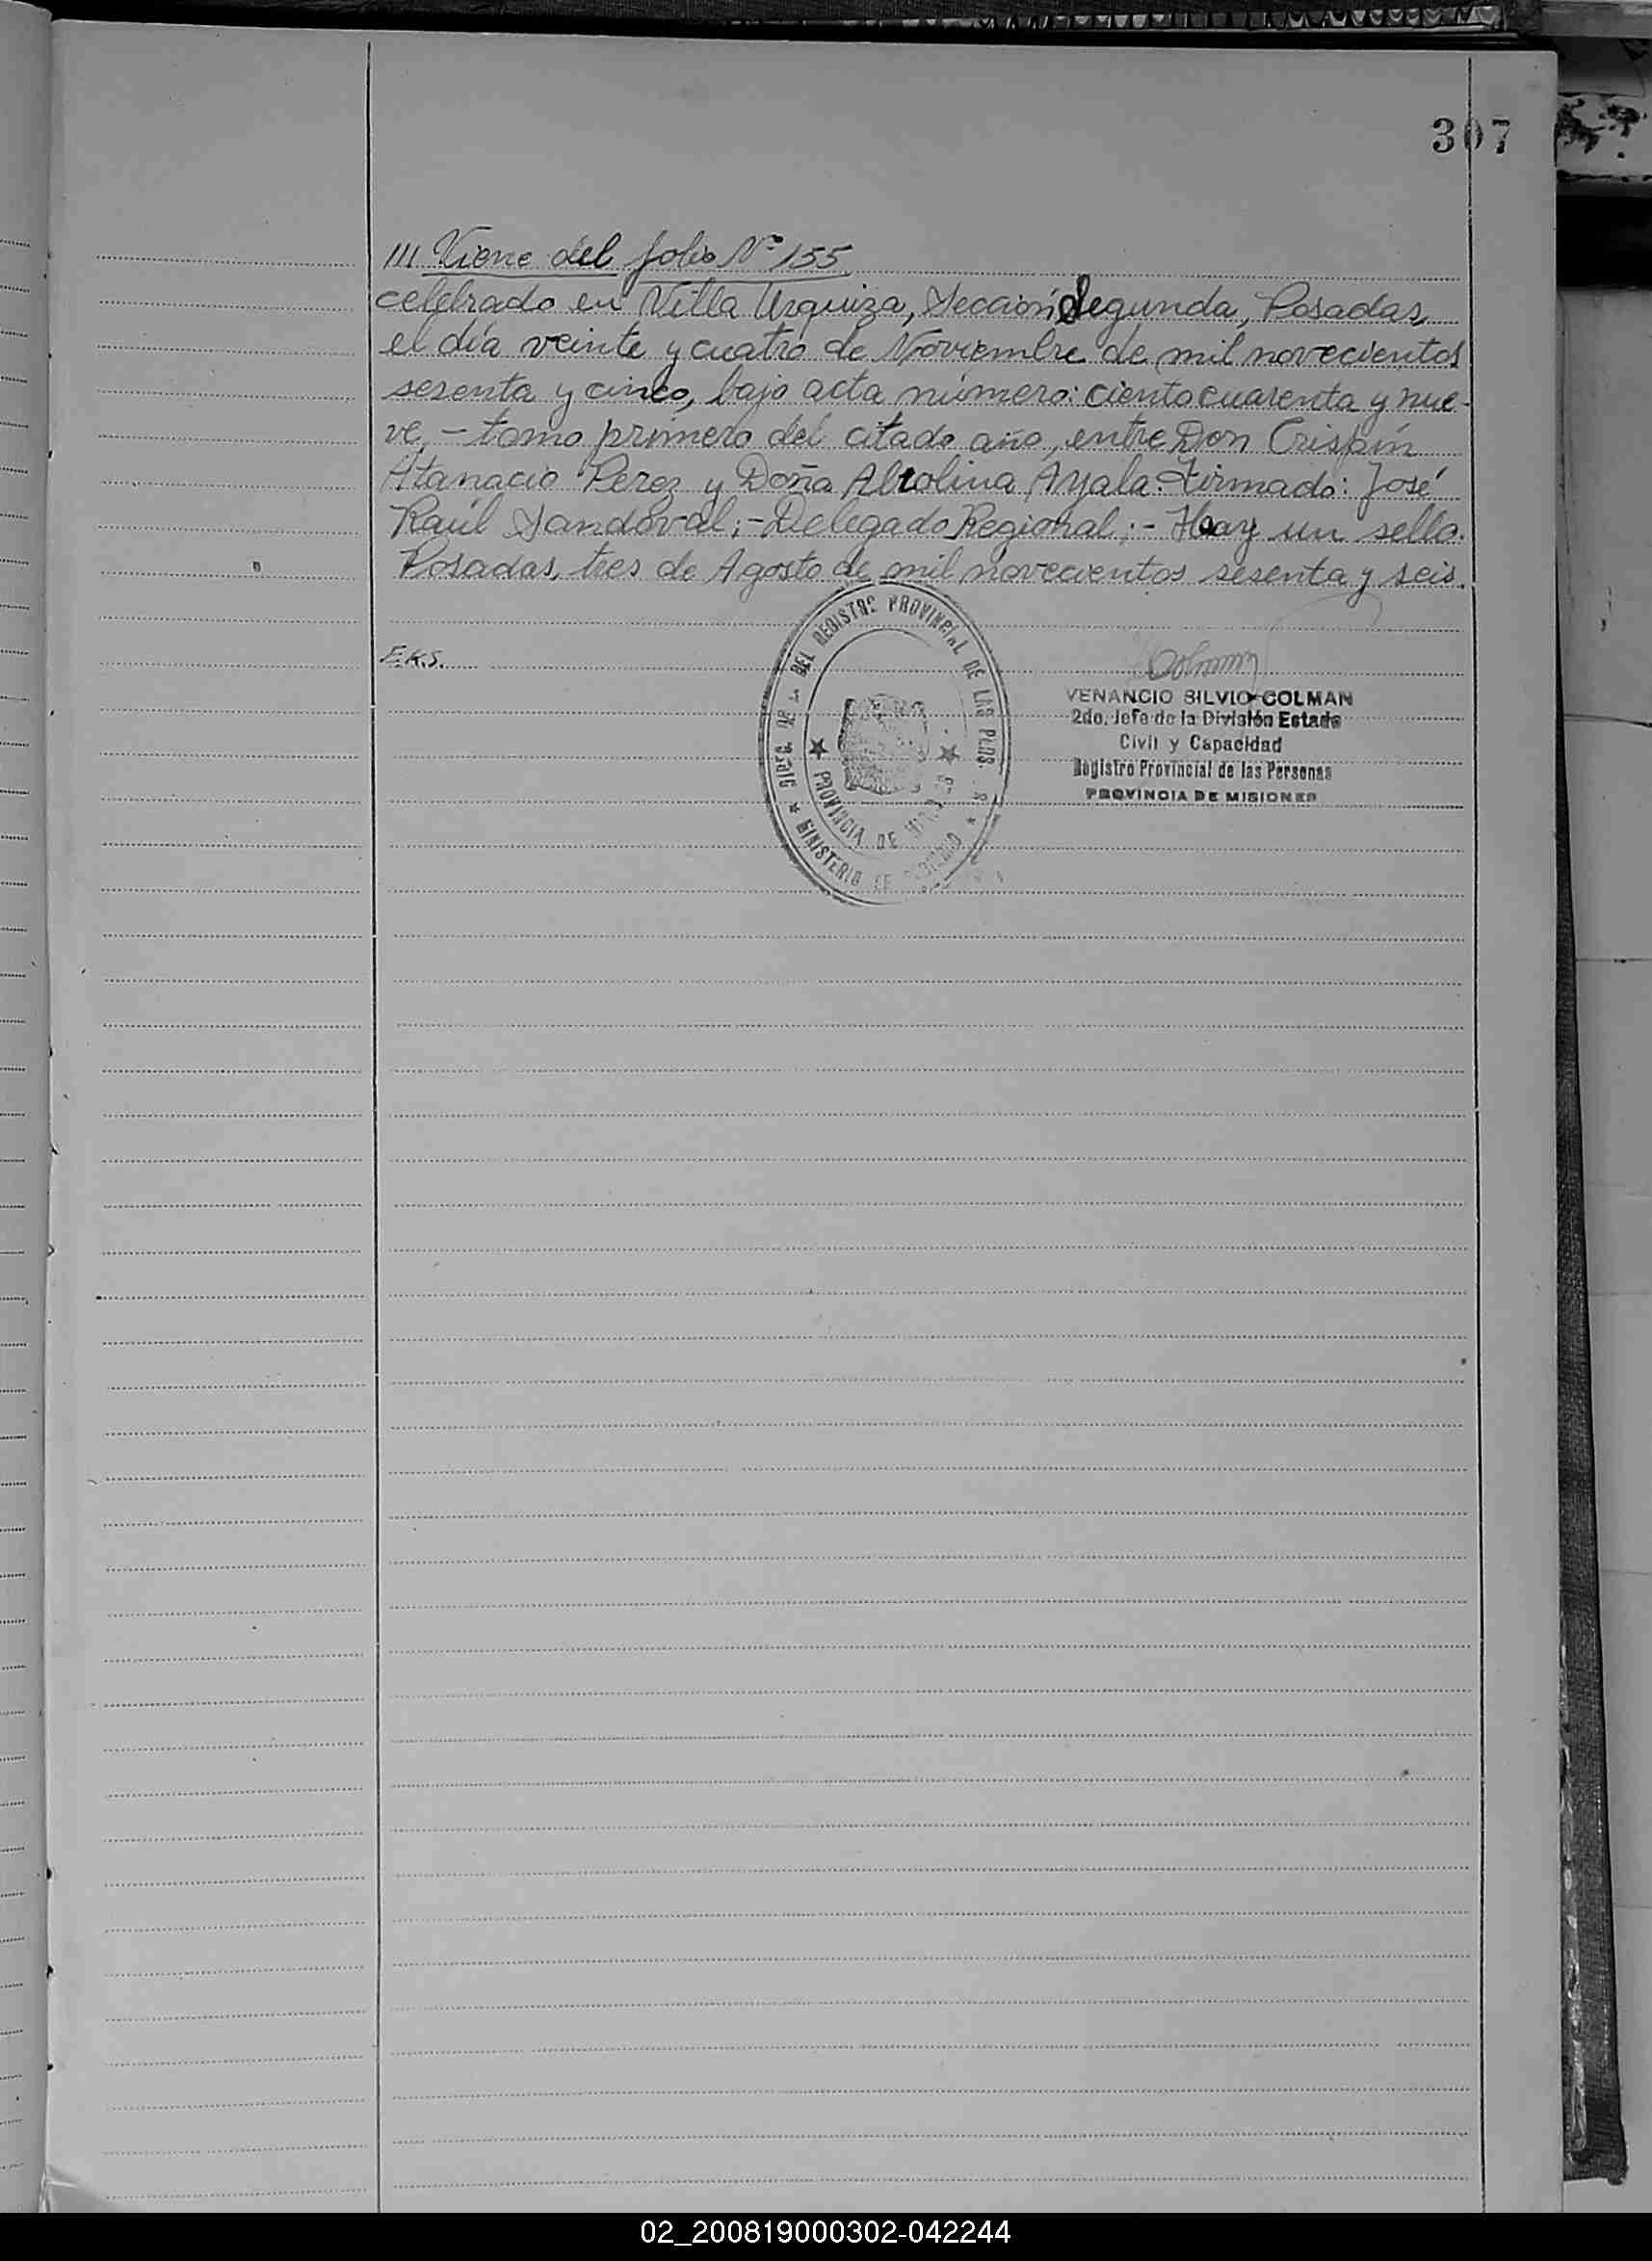 307
/// Viene del folio Nº 155
celebrado en Villa Urquiza, Sección Segunda, Posadas,
el día veinte y cuatro de Noviembre de mil novecientos
sesenta y cinco, bajo acta número: ciento cuarenta y nue-
ve, - tomo primero del citado año, entre Don Crispín
Atanacio Perez y Doña Ayala. Firmado: José
Raúl Sandoval; - Delegado Regional; - Hay un sello.
Posadas, tres de Agosto de mil novecientos sesenta y seis.
E.K.S.
DEL REGISTRO PROVINCIAL DE LAS
MINISTERIO DE
PROVINCIA DE
VENANCIO SILVIO COLMAN
2do. Jefe de la División Estado
Civil y Capacidad
Registro Provincial de las Personas
PROVINCIA DE MISIONES
02_200819000302-042244